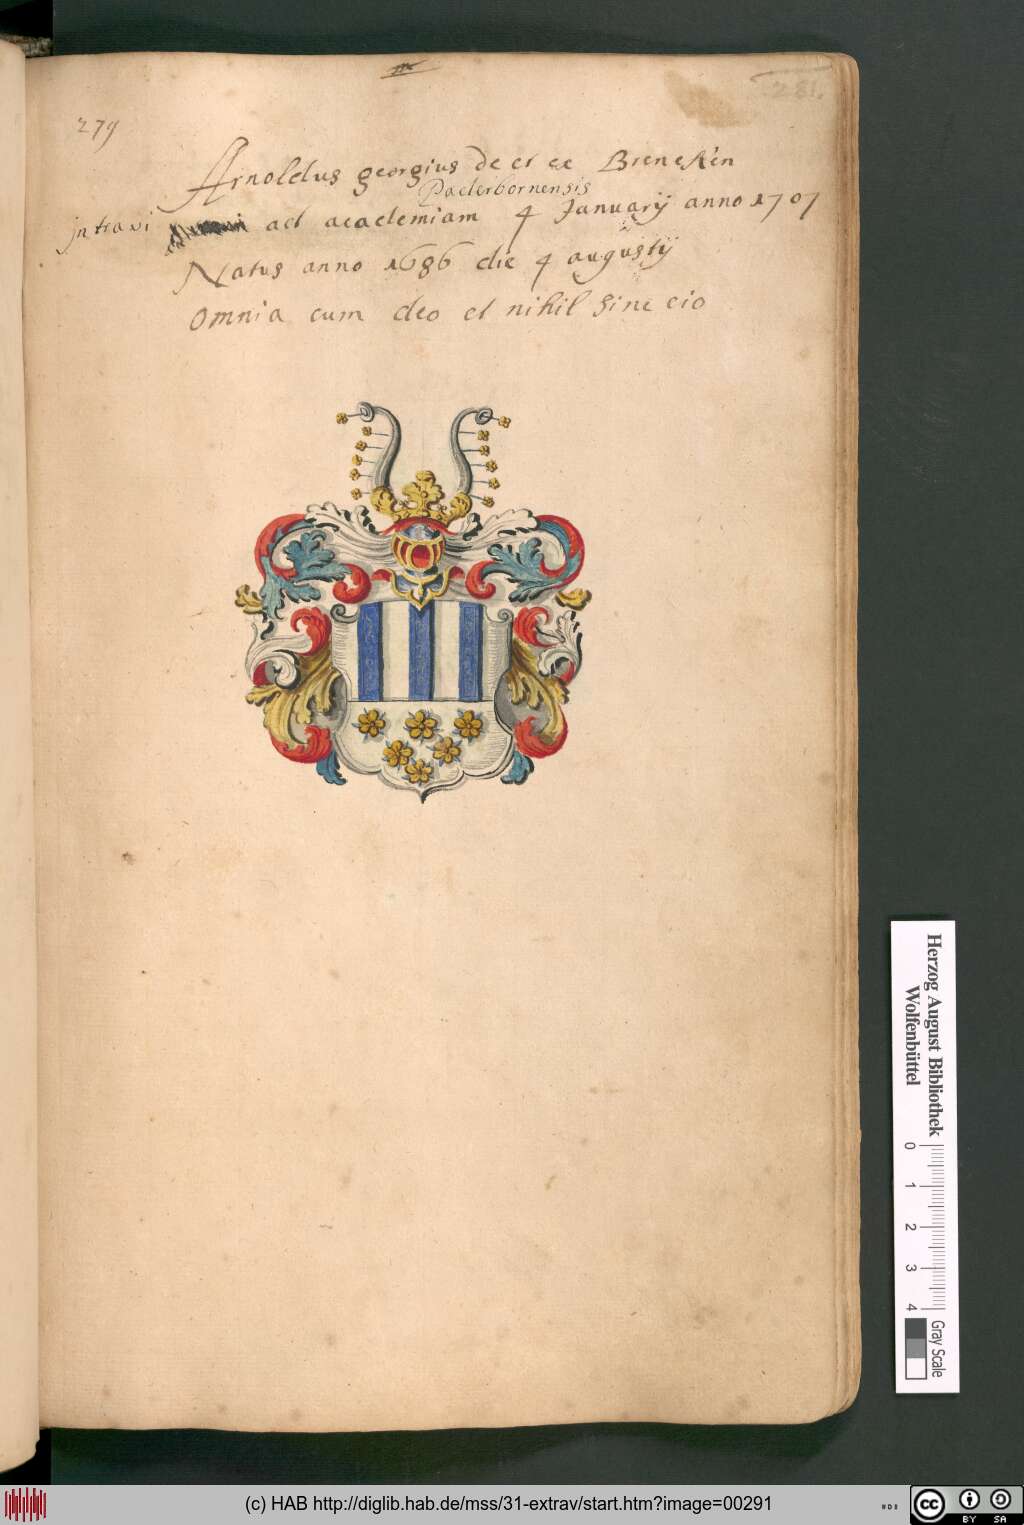 279
281.
Arnoldus georgius de et ex Breneken
Paderbornensis
intravi ad academiam 4 Januarij anno 1707
Natus anno 1686 die 4 augustij
omnia cum deo et nihil sine eio
Herzog August Bibliothek
Wolfenbüttel
0 1 2 3 4
Gray Scale
(c) HAB http://diglib.hab.de/mss/31-extrav/start.htm?image=00291
cc BY SA